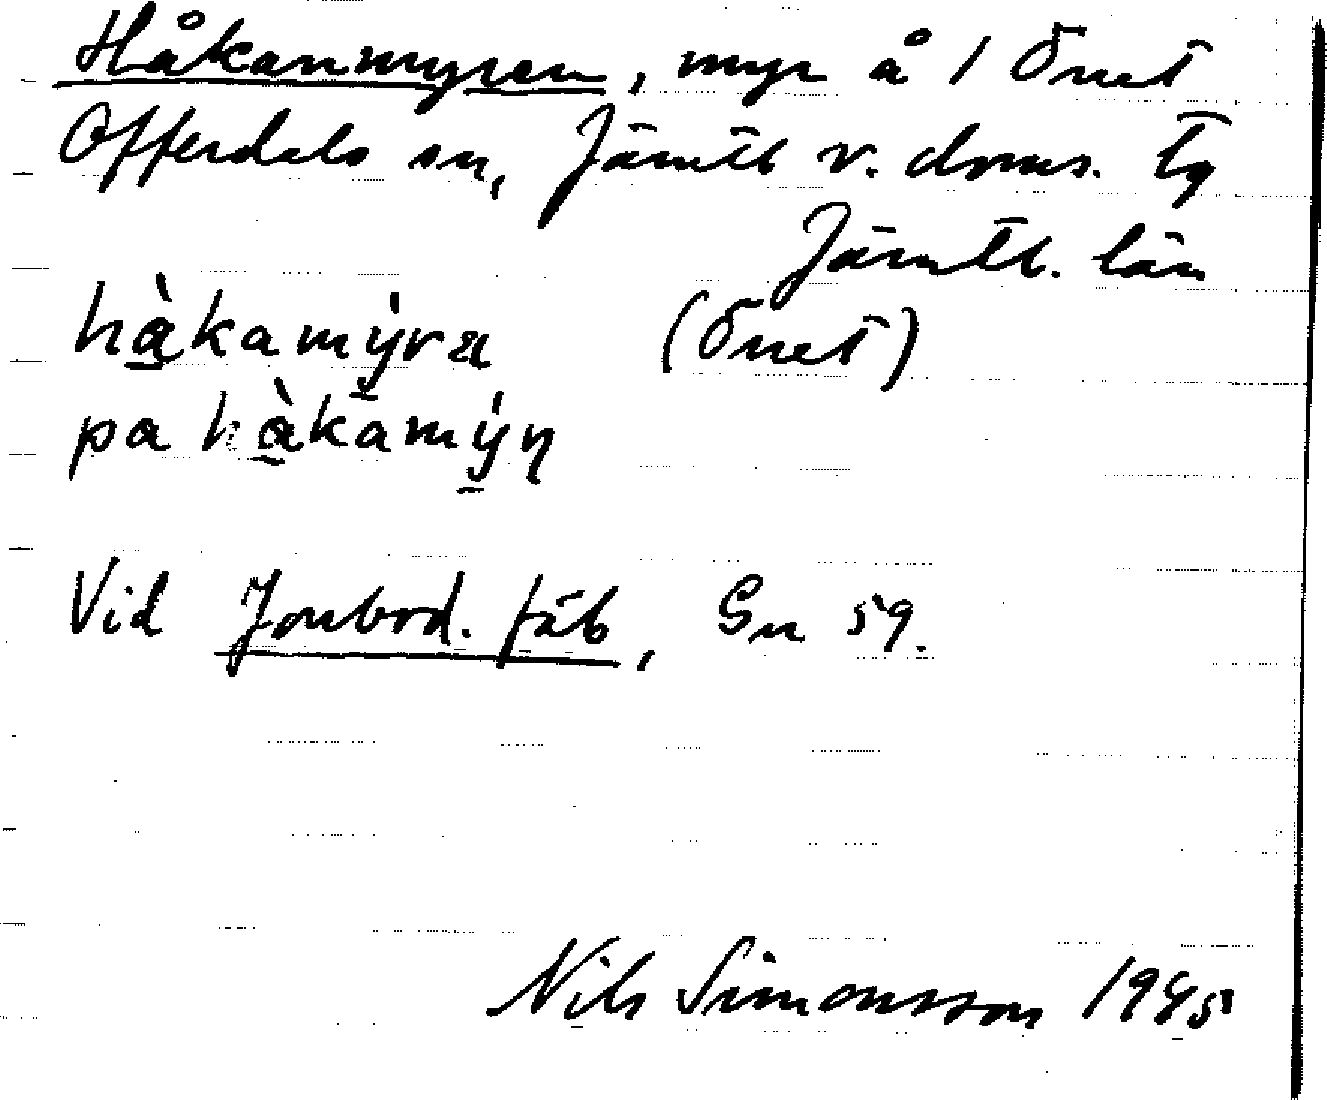 Håkanmyren, myr å 1 Önet
Offerdals sn, Jämtl. v. doms. tg
Jämtl. län
hàkamýra (Önet)
pa hàkamýn
Vid Jonbod. fäb, Gn 59.
Nils Simonsson 1945